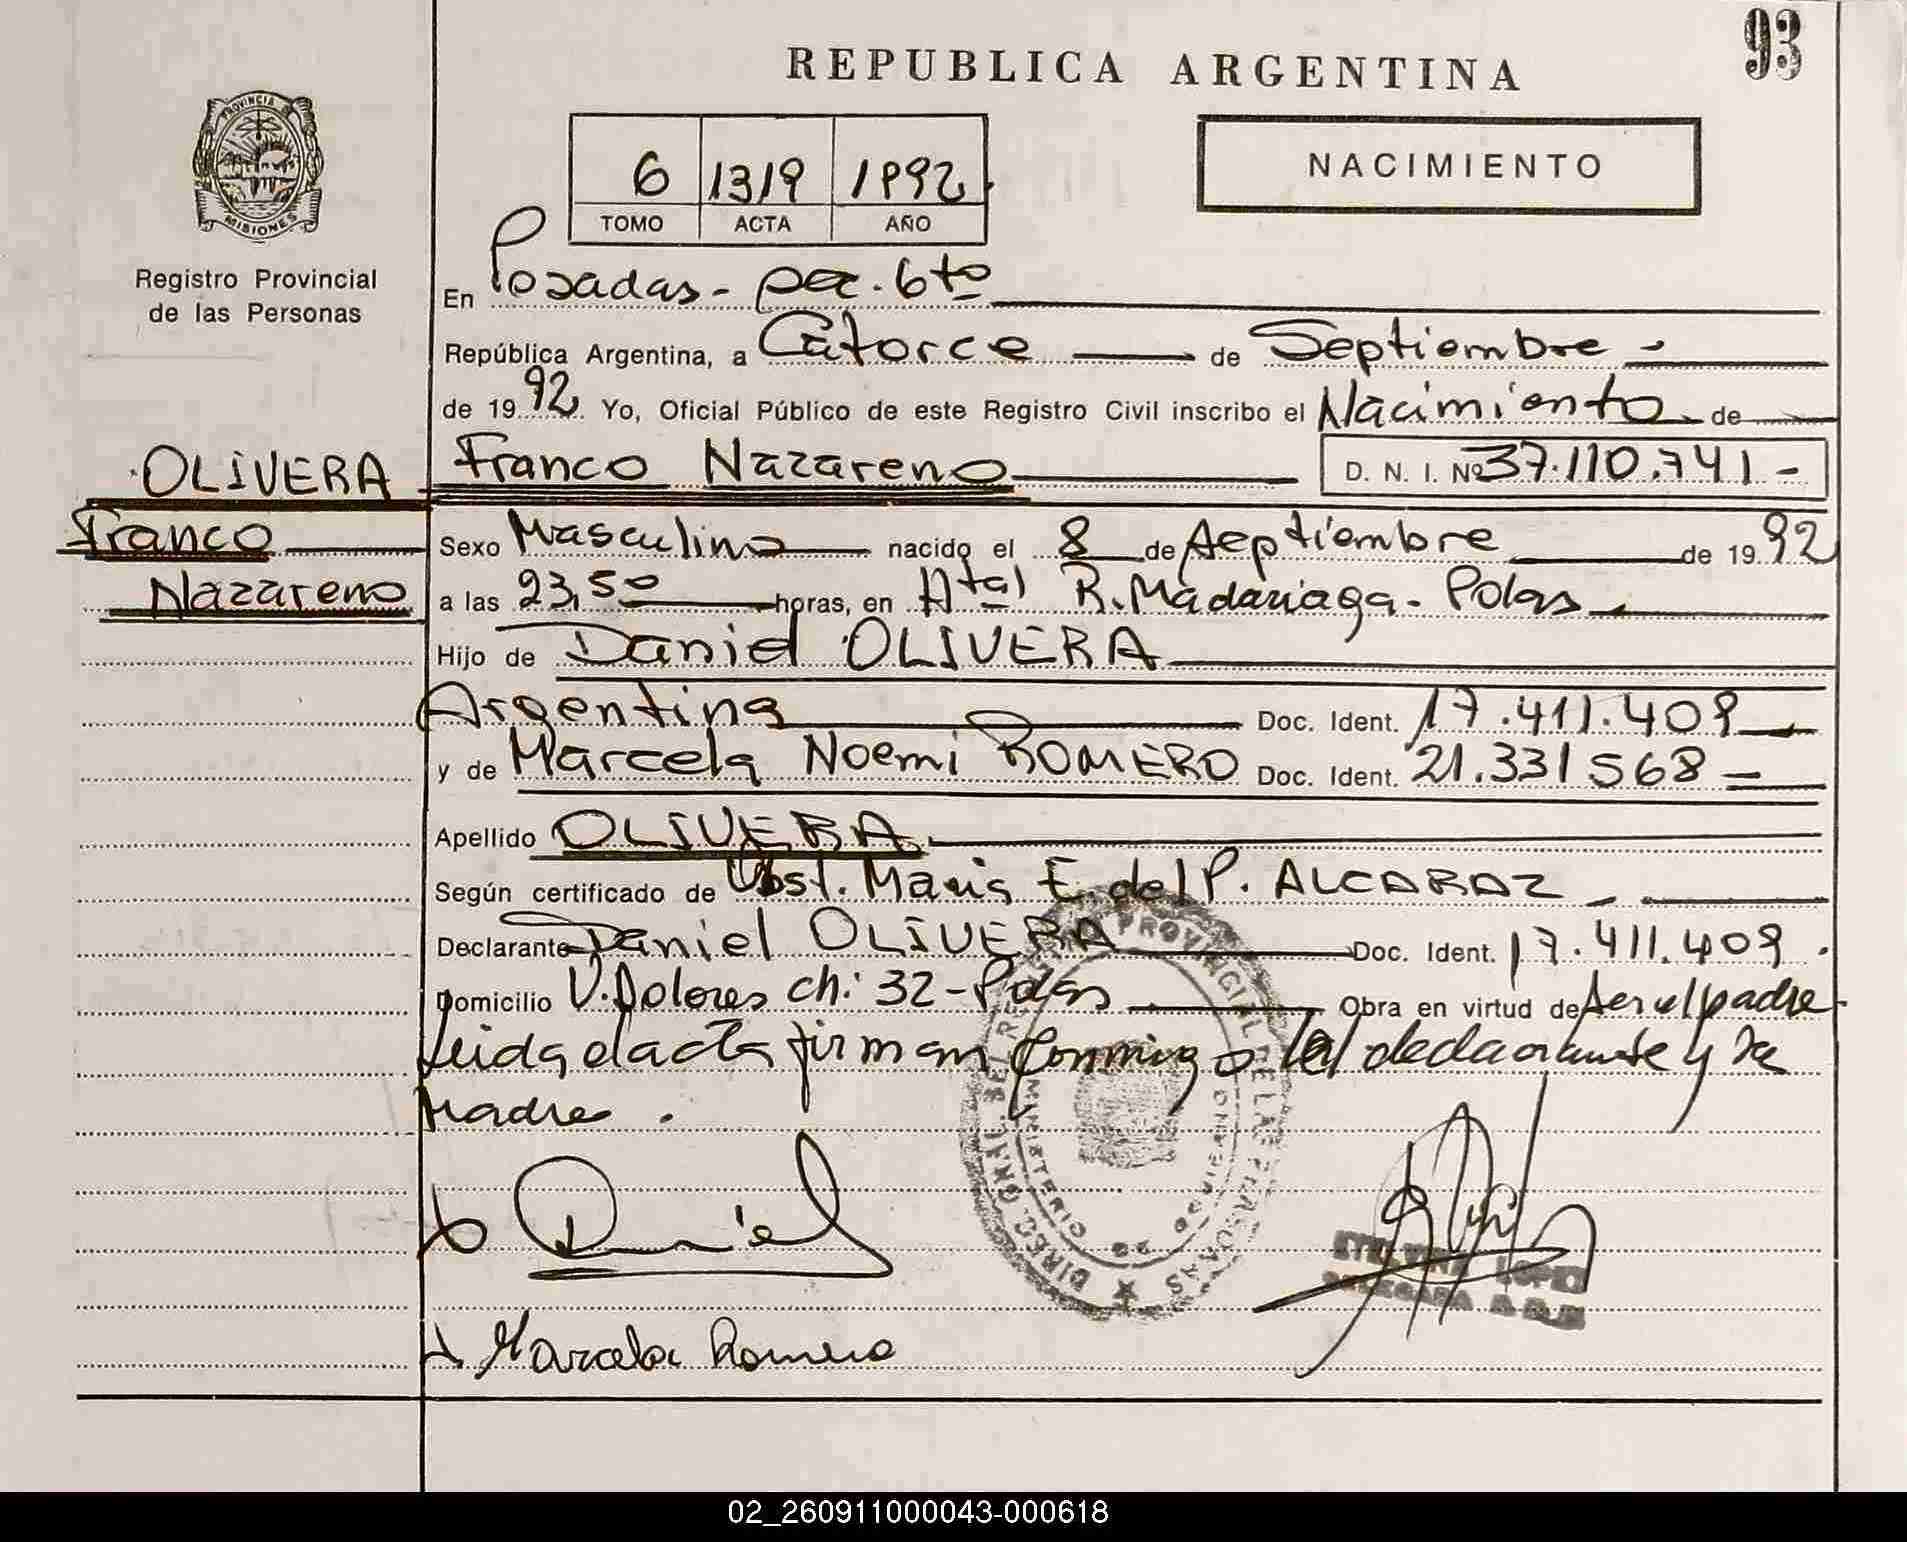 93
REPUBLICA ARGENTINA
PROVINCIA DE
MISIONES
Registro Provincial
de las Personas
NACIMIENTO
6 1319 1992
TOMO ACTA AÑO
En Posadas - sec. 6to
República Argentina, a Catorce de Septiembre
de 1992. Yo, Oficial Público de este Registro Civil inscribo el Nacimiento de
OLIVERA
Franco
Nazareno
Franco Nazareno D. N. I. Nº 37.110.741 -
Sexo Masculino nacido el 8 de septiembre de 1992
a las 23,50 horas, en Htal R. Madariaga - Pdas
Hijo de Daniel OLIVERA
Argentina Doc. Ident. 17.411.409
y de Marcela Noemi ROMERO Doc. Ident. 21.331568
Apellido OLIVERA
Según certificado de Obst. Maris E. del P. ALCARAZ
Declarante Daniel OLIVERA Doc. Ident. 17.411.409.
Domicilio V. Dolores ch: 32 - Pdas Obra en virtud de ser el padre
Leida el acta firman conmigo el declarante y la
madre.
DIREC. GRAL. DEL REG. PROVINCIAL DE LAS PERSONAS
MINISTERIO DE GOBIERNO
Daniel
LOPEZ
Marcela Romero
02_260911000043-000618